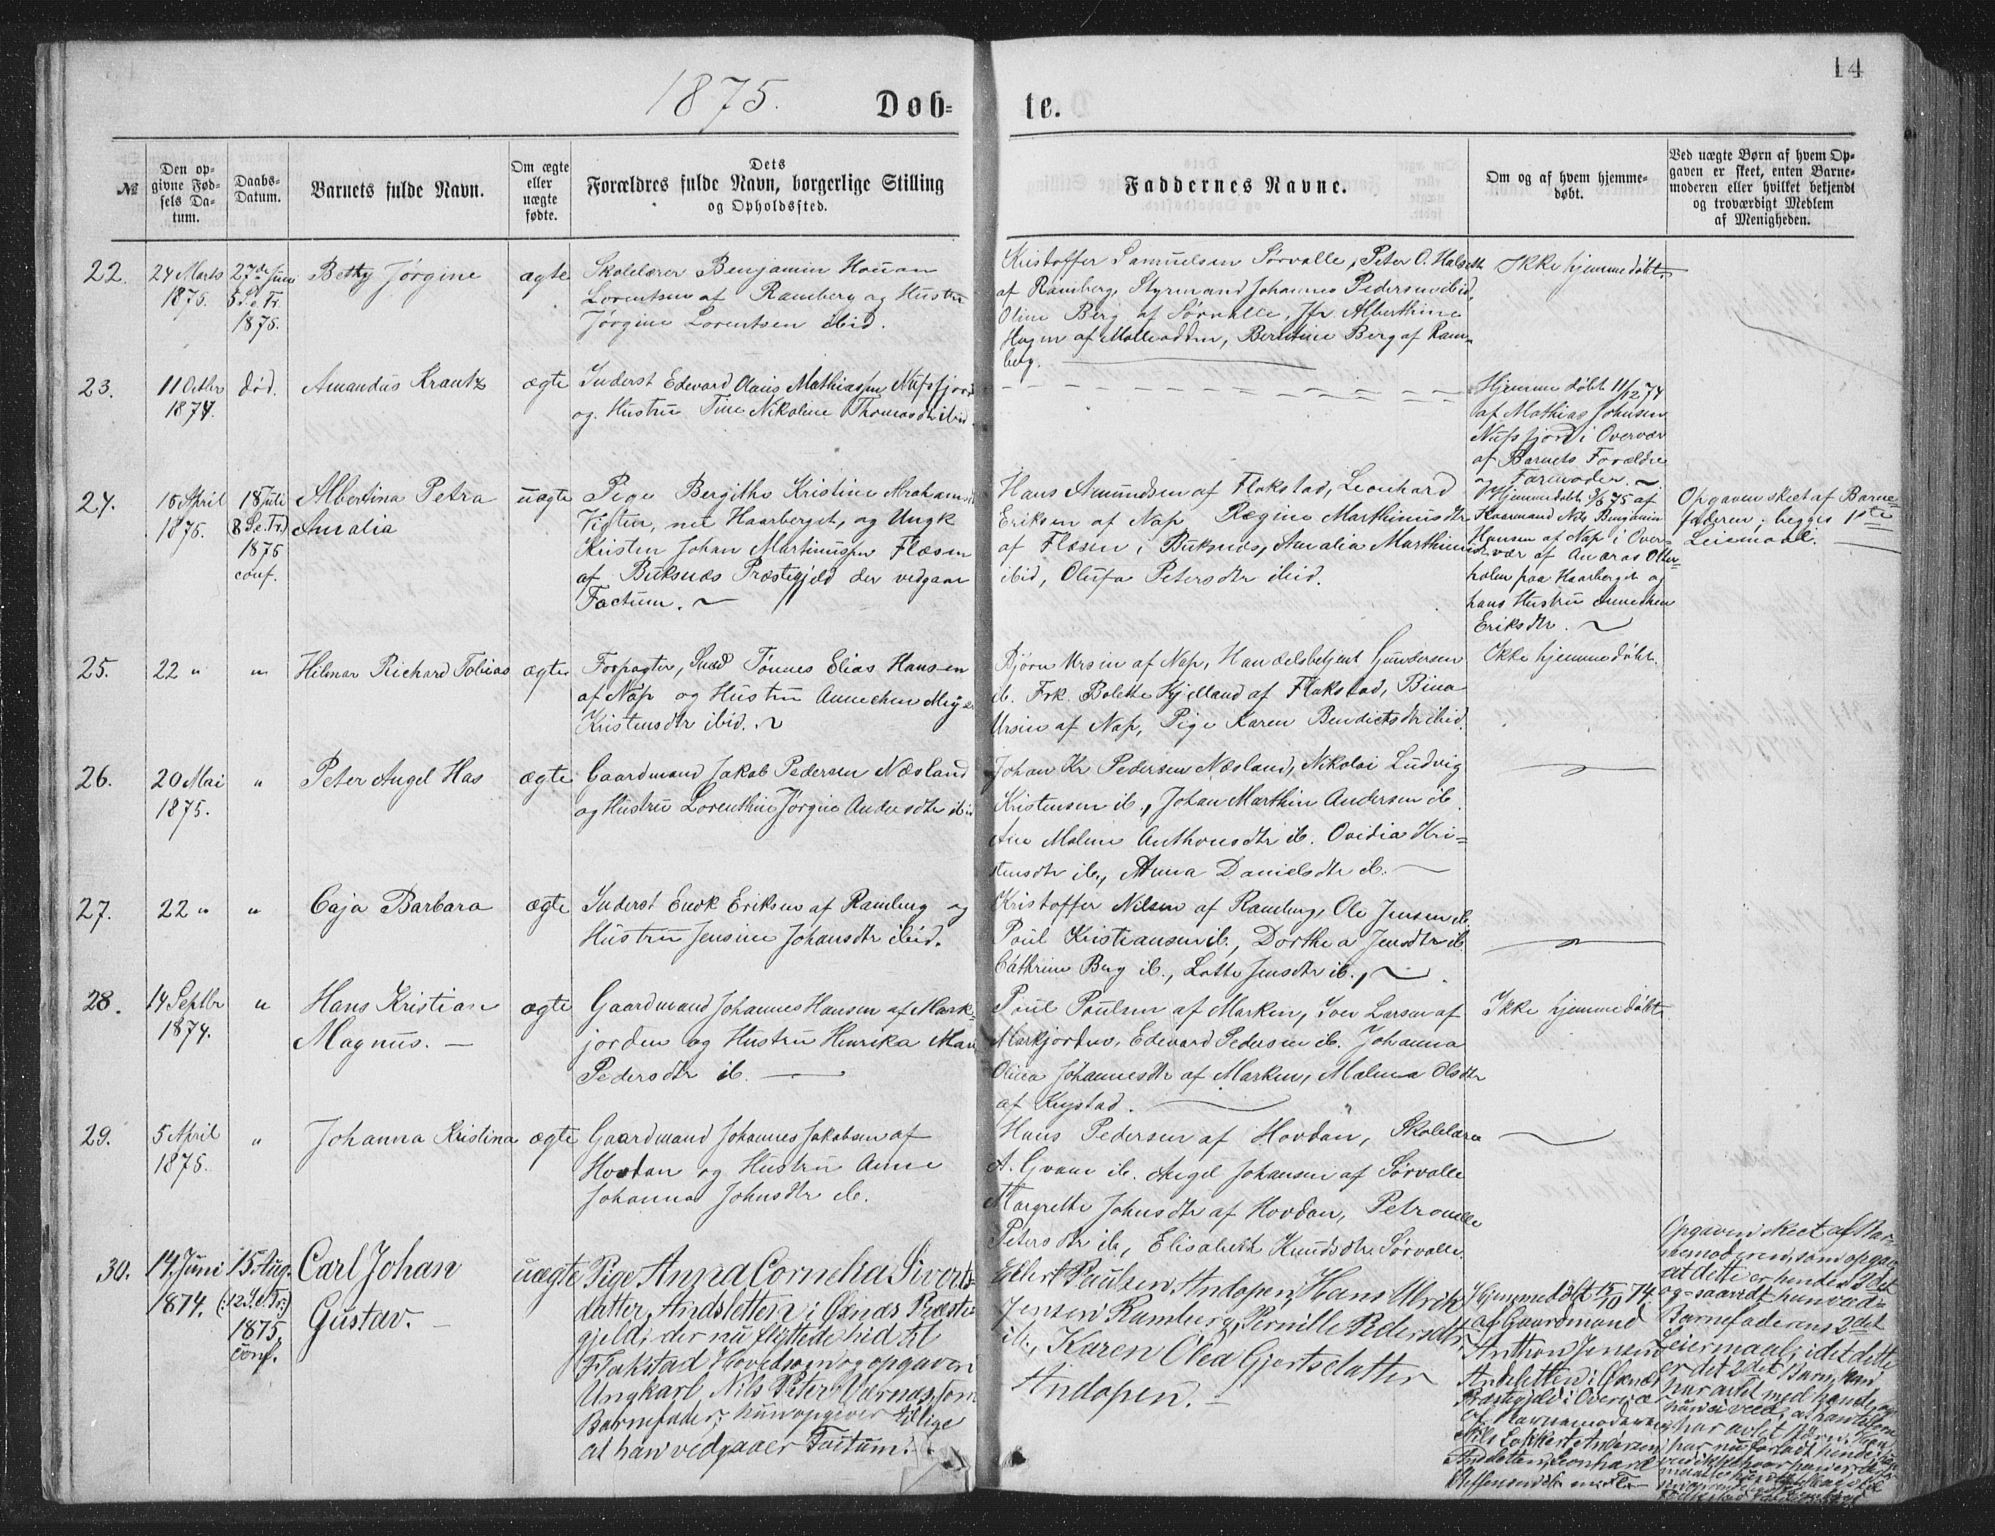 14
1875.
Døb-
te.
№
Den op-
givne Fød-
sels Da-
tum.
Daabs-
Datum.
Barnets fulde Navn.
Om ægte
eller
uægte
fødte.
Dets
Forældres fulde Navn, borgerlige Stilling
og Opholdssted.
Faddernes Navne.
Om og af hvem hjemme-
døbt.
Ved uægte Børn af hvem Op-
gaven er skeet, enten Barne-
moderen eller hvilket bekjendt
og troværdigt Medlem
af Menigheden.
22.
24 Marts
1875.
27de Juni
5 S. e. Tr.
1875.
Betty Jørgine
ægte
Skolelærer Benjamin
Lorentsen af Ramberg og Hustru
Jørgine Lorentsen ibid.
Kristoffer Samuelsen Sørvalle, Peter O.
af Ramberg, Styrmand Johannes Pedersen ibid,
Oline Berg af Sørvalle, Jfr Alberthine
Hagen af Molleodden, Berntine Berg af Ram-
berg.
Ikke hjemmedøbt
23.
11 Octbr
1874.
død.
Amandus Krantz
ægte
Inderst Edevard Olaus Mathiassen Nufsfjord
og Hustru Tine Nikoline Thomasdtr ibid.
Hjemmedøbt 11/12 74
af Mathias Johnsen
Nufsfjord i Overvær
af Barnets Forældre
og Farmoder.
24.
15 April
1875.
18 Juli
8 S. e. Tr.
1875
conf.
Albertina Petra
Amalia
uægte
Pige Bergithe Kristine Abraham
Vigten, nu Haarberget, og Ungk
Kristen Johan Martinussen Flæsen
af Buksnæs Præstegjeld der vedgaar
Factum.
Hans Amundsen af Flakstad, Leonhard
Eriksen af Nap Regine Marthinusdtr
af Flæsen i Buksnæs, Amalia Marthinusdtr
ibid, Olufa Petersdtr ibid.
Hjemmedøbt 9/6 75 af
Kaarmand Nils Benjamin
Hansen af Nap i Over-
vær af Andreas Olter-
holm paa Haarberget og
hans Hustru Annechen
Eriksdtr.
Opgaven skeet af Barne-
faderen; begges 1ste
Leiermaal.
25.
22 "
"
Hilmar Richard Tobias
ægte
Forpagter, Sned Tønnes Elias Hansen
af Nap og Hustru Annechen
Kristensdtr ibid.
Bjørn Ursin af Nap, Handelsbetjent Gundersen
ib. Frk. Bolette Kjelland af Flakstad, Bina
Ursin af Nap, Pige Karen Bendictsdtr ibid.
Ikke hjemmedøbt.
26.
20 Mai
1875.
"
Peter Angel Has
ægte
Gaardmand Jakob Pedersen Næsland
og Hustru Lorenthine Jørgine Andersdtr ibid
Johan Kr Pedersen Næsland, Nikolai Ludvig
Kristensen ib., Johan Marthin Andersen ib.
Ane Malene Anthonsdtr ib. Ovidia Kri-
stensdtr ib., Anna Danielsdtr ib.
27.
22 "
"
Caja Barbara
ægte
Inderst Enok Eriksen af Ramberg og
Hustru Jensine Johansdtr ibid.
Kristoffer Nilsen af Ramberg, Ole Jensen ib.
Poul Kristiansen ib., Dorthea Jensdtr ib
Cathrine Berg ib., Lotte Jensdtr ib.,
28.
14 Septbr
1874.
"
Hans Kristian
Magnus.
ægte
Gaardmand Johannes Hansen af Mark-
jorden og Hustru Henrika Mari
Pedersdtr ib
Poul Poulsen af Marken, Iver Larsen af
Markjorden, Edevard Pedersen ib. Johanna
Olina Johannesdtr af Marken, Malena Olsdtr
af Krystad.
Ikke hjemmedøbt
29.
5 April
1875.
"
Johanna Kristina
ægte
Gaardmand Johannes Jakobsen af
Hovdan og Hustru Anne
Johanna Johnsdtr ib.
Hans Pedersen af Hovdan, Skolelærer
A. Gram ib. Angel Johansen af Sørvalle
Margrethe Johnsdtr af Hovdan, Petronelle
Petersdtr ib., Elisabeth Knudsdtr Sørvalle
30.
14. Juni
1874.
15. Aug.
(12. S. e. Tr.)
1875,
conf.
Carl Johan
Gustav.
uægte
Pige Anna Cornelia Siverts-
datter Andsletten i Øxnæs Præste-
gjeld, der nu flyttede hid til
Flakstad Hovedsogn og opgaven
Ungkarl Nils Peter som
Barnefader; hun opgiver tillige
at han vedgaaer Factum.
Edert Paulsen Andopen, Hans Ulrik
Jensen Ramberg, Pernille Pedersdtr
ib., Karen Olea Gjertsdatter
Andopen.
Hjemmedøbt 15/10 74
af Gaardmand
Anthon Jensen
Andsletten i Øxnæs
Præstegjeld i Overvær
af
Andsletten,
Opgaven skeet af Bar-
nemoderen, som opgav
at dette er hendes 2det
og saavidt hun ved
Barnefaderens 2det
Leiermaal; idet dette
er det 2det Barn, han
har avlet med hende, og